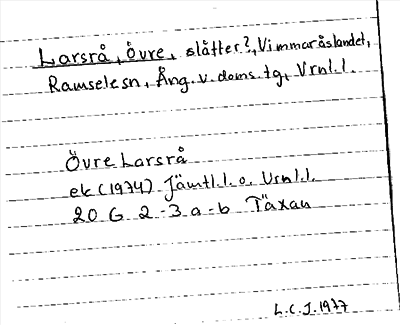 Larsrå, Övre, slåtter?, Vimmaråslandet,
Ramselesn, Ång. v. doms. tg, Vrnl.l.
Övre Larsrå
ek (1974) Jämtl.l. o. Vrnl.l.
20 G 2-3 a-b Täxan
L.C.J. 1977